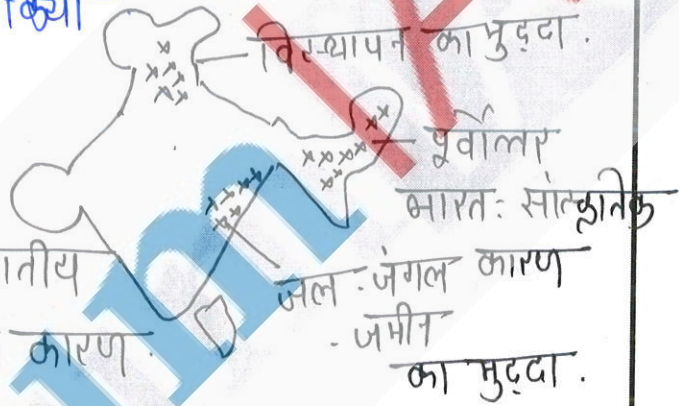 किया
विस्थापन का मुद्दा.
पूर्वोत्तर
भारत: सांस्कृतिक
कारण
जल - जंगल
- जमीन
का मुद्दा.
कारण.